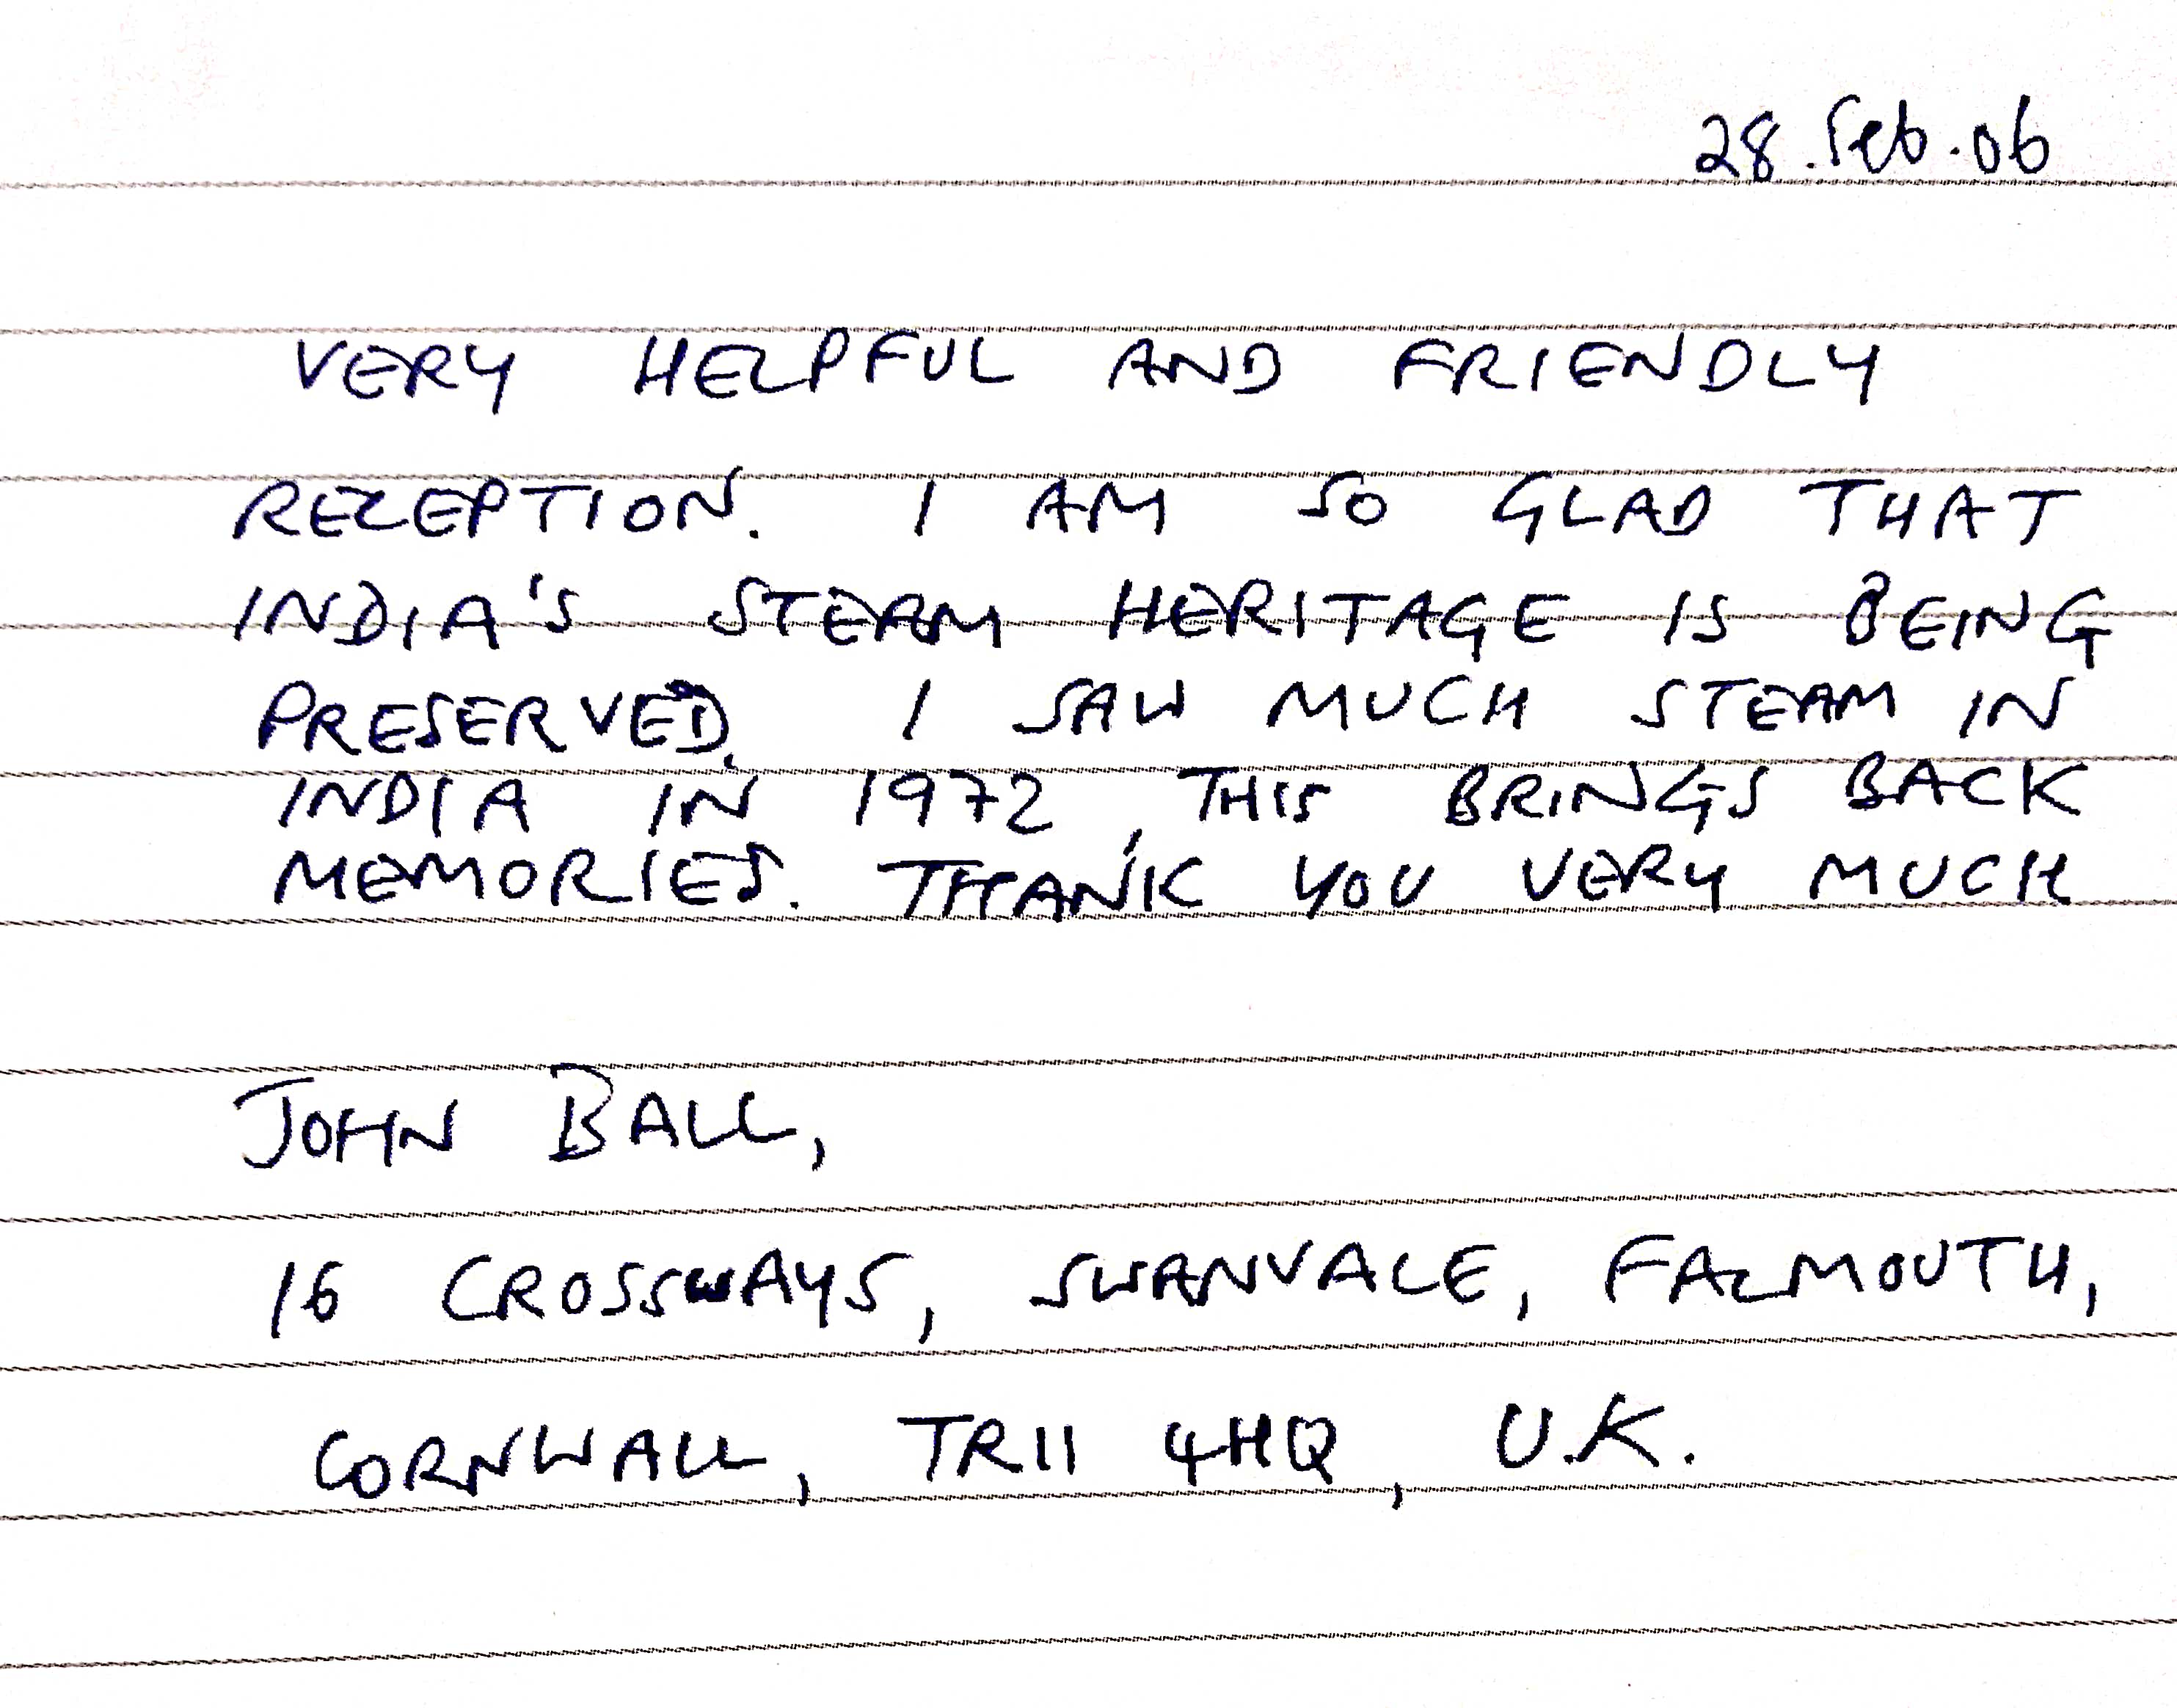 28.Feb.06
VERY HELPFUL AND FRIENDLY
RECEPTION. I AM SO GLAD THAT
INDIA'S STEAM HERITAGE IS BEING
PRESERVED. I SAW MUCH STEAM IN
INDIA IN 1972, THIS BRINGS BACK
MEMORIES. THANK YOU VERY MUCH
JOHN BALL,
16 CROSSWAYS, SWANVALE, FALMOUTH,
CORNWALL, TR11 4HQ, U.K.